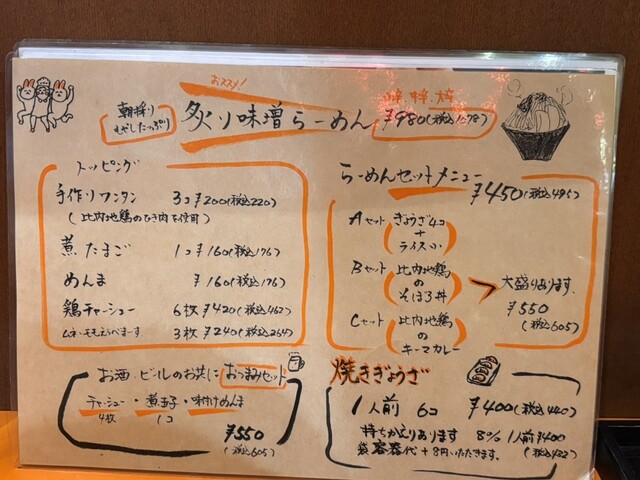 おススメ!
朝採り
もやしたっぷり
炙り味噌らーめん ¥980(税込1078)
トッピング
手作りワンタン 3コ ¥200(税込220)
(比内地鶏のひき肉を使用)
煮たまご 1コ ¥160(税込176)
めんま ¥160(税込176)
鶏チャーシュー 6枚 ¥420(税込462)
ムネ・モモえらべまーす 3枚 ¥240(税込264)
らーめんセットメニュー ¥450(税込495)
Aセット ぎょうざ4コ
+
ライス小
Bセット 比内地鶏
の
そぼろ丼
大盛りあります。
¥550
(税込605)
Cセット 比内地鶏
の
キーマカレー
お酒・ビールのお共に おつまみセット
チャーシュー・煮玉子・味付けめんま
4枚 1コ
¥550
(税込605)
焼きぎょうざ
1人前 6コ ¥400(税込440)
持ちかえりあります 8% 1人前¥400
袋容器代+8円いただきます。 (税込432)